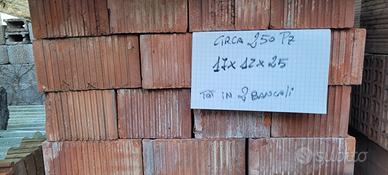 CIRCA 250 PZ
17 x 12 x 25
TOT IN 2 BANCALI
subito